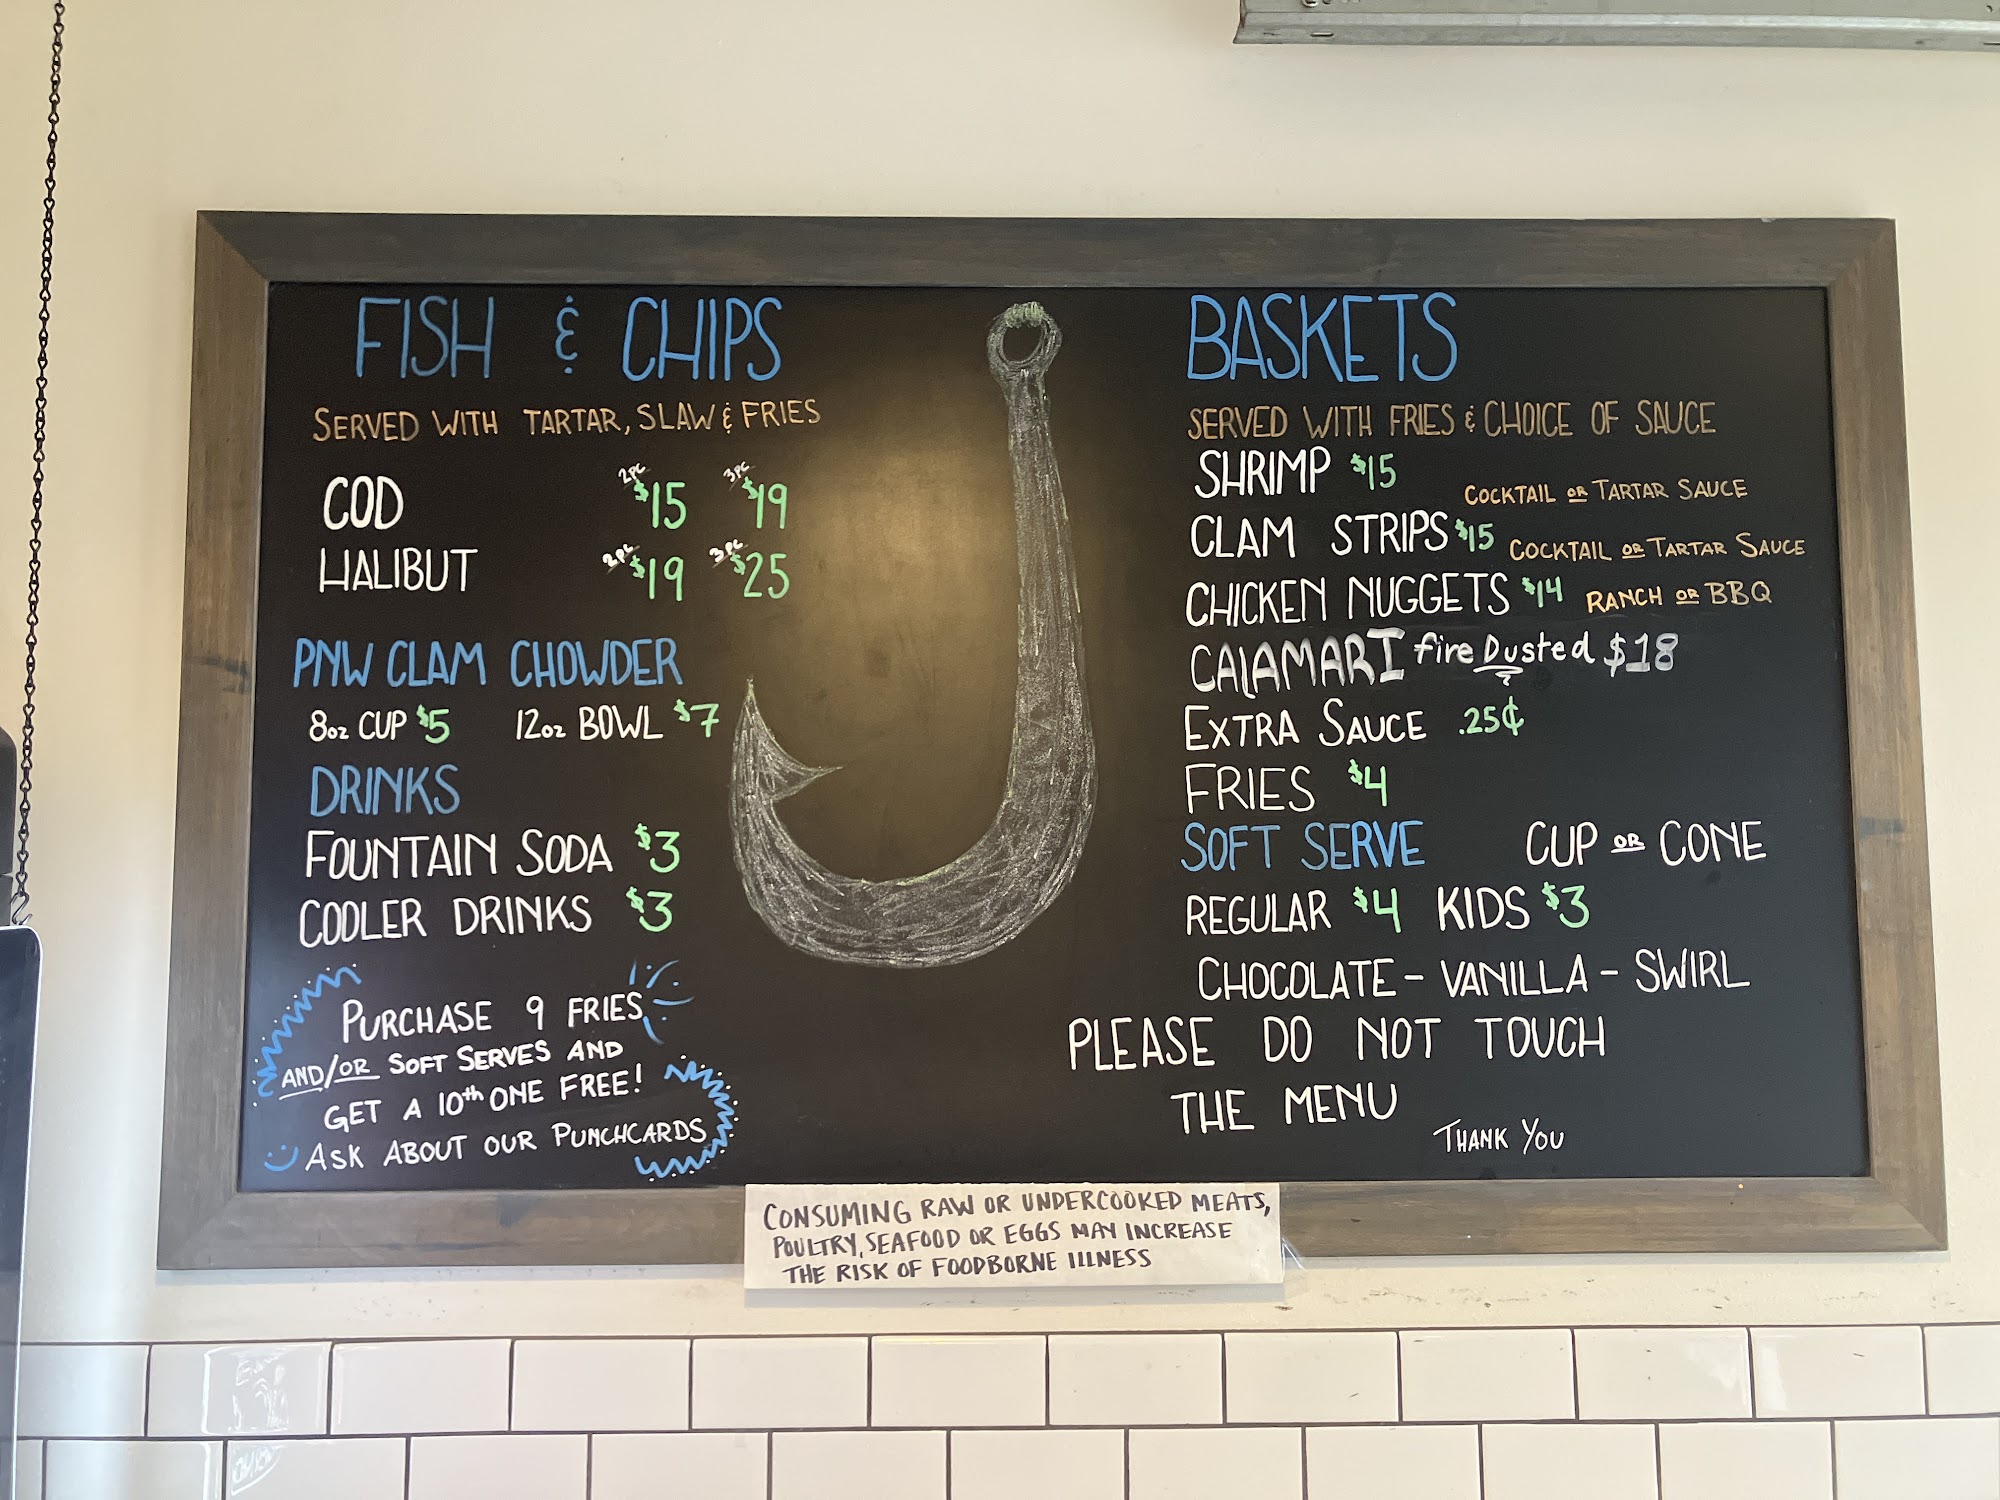 FISH & CHIPS
SERVED WITH TARTAR, SLAW & FRIES
COD 2PC $15 3PC $19
HALIBUT 2PC $19 3PC $25
PNW CLAM CHOWDER
8oz CUP $5 12oz BOWL $7
DRINKS
FOUNTAIN SODA $3
COOLER DRINKS $3
PURCHASE 9 FRIES
AND/OR SOFT SERVES AND
GET A 10th ONE FREE!
ASK ABOUT OUR PUNCHCARDS
BASKETS
SERVED WITH FRIES & CHOICE OF SAUCE
SHRIMP $15 COCKTAIL OR TARTAR SAUCE
CLAM STRIPS $15 COCKTAIL OR TARTAR SAUCE
CHICKEN NUGGETS $14 RANCH OR BBQ
CALAMARI fire Dusted $18
EXTRA SAUCE .25¢
FRIES $4
SOFT SERVE CUP OR CONE
REGULAR $4 KIDS $3
CHOCOLATE - VANILLA - SWIRL
PLEASE DO NOT TOUCH
THE MENU
THANK YOU
CONSUMING RAW OR UNDERCOOKED MEATS,
POULTRY, SEAFOOD OR EGGS MAY INCREASE
THE RISK OF FOODBORNE ILLNESS